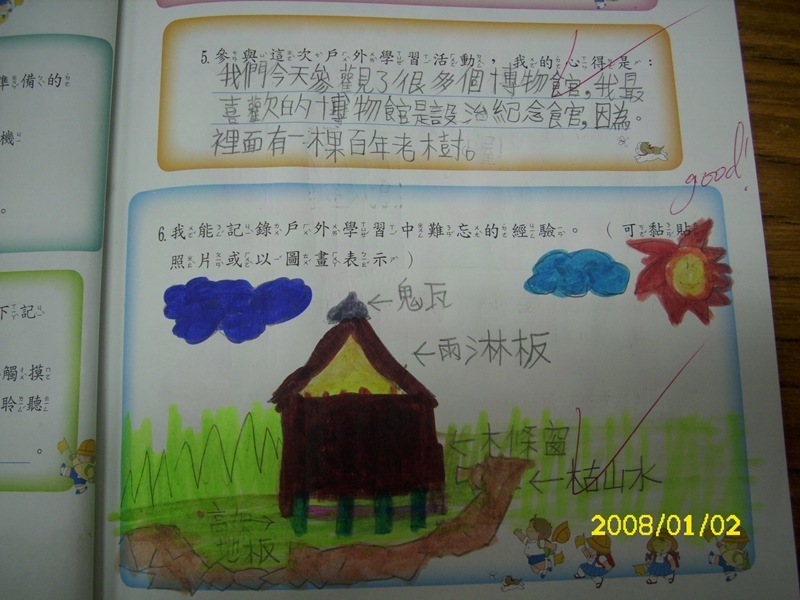 準備的
機
。
下記
觸摸
聆聽
。
5.參與這次戶外學習活動，我的心得是：
我們今天參觀了很多個博物館，我最
喜歡的博物館是設治紀念館，因為。
裡面有一棵百年老樹。
good!
6.我能記錄戶外學習中難忘的經驗。（可黏貼
照片或以圖畫表示）
←鬼瓦
←雨淋板
←木條窗
←枯山水
高架→
地板
2008/01/02